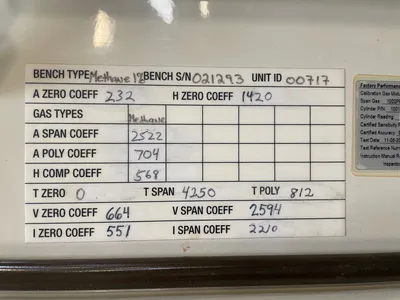 BENCH TYPE Methane 1% BENCH S/N 021293 UNIT ID 00717
A ZERO COEFF 232 H ZERO COEFF 1420
GAS TYPES Methane
A SPAN COEFF 2522
A POLY COEFF 704
H COMP COEFF 568
T ZERO 0 T SPAN 4250 T POLY 812
V ZERO COEFF 664 V SPAN COEFF 2594
I ZERO COEFF 551 I SPAN COEFF 2210
Factory Performance
Calibration Gas
Span Gas
Cylinder P/N
Cylinder Reading
Certified Sensitivity
Certified Accuracy
Test Date
Test Reference
Instruction Manual